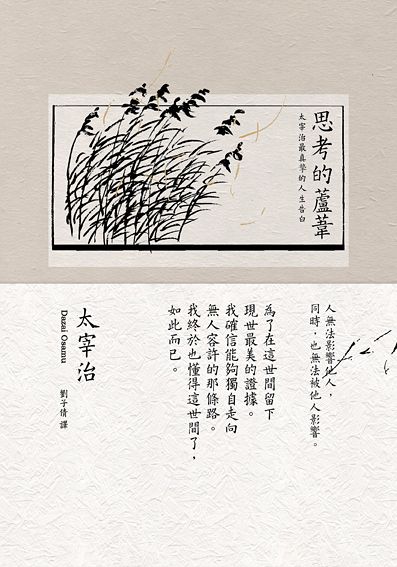 思考的蘆葦
太宰治最真摯的人生告白
人無法影響他人，
同時，也無法被他人影響。
為了在這世間留下
現世最美的證據。
我確信能夠獨自走向
無人容許的那條路。
我終於也懂得這世間了，
如此而已。
太宰治
Dazai Osamu
劉子倩 譯